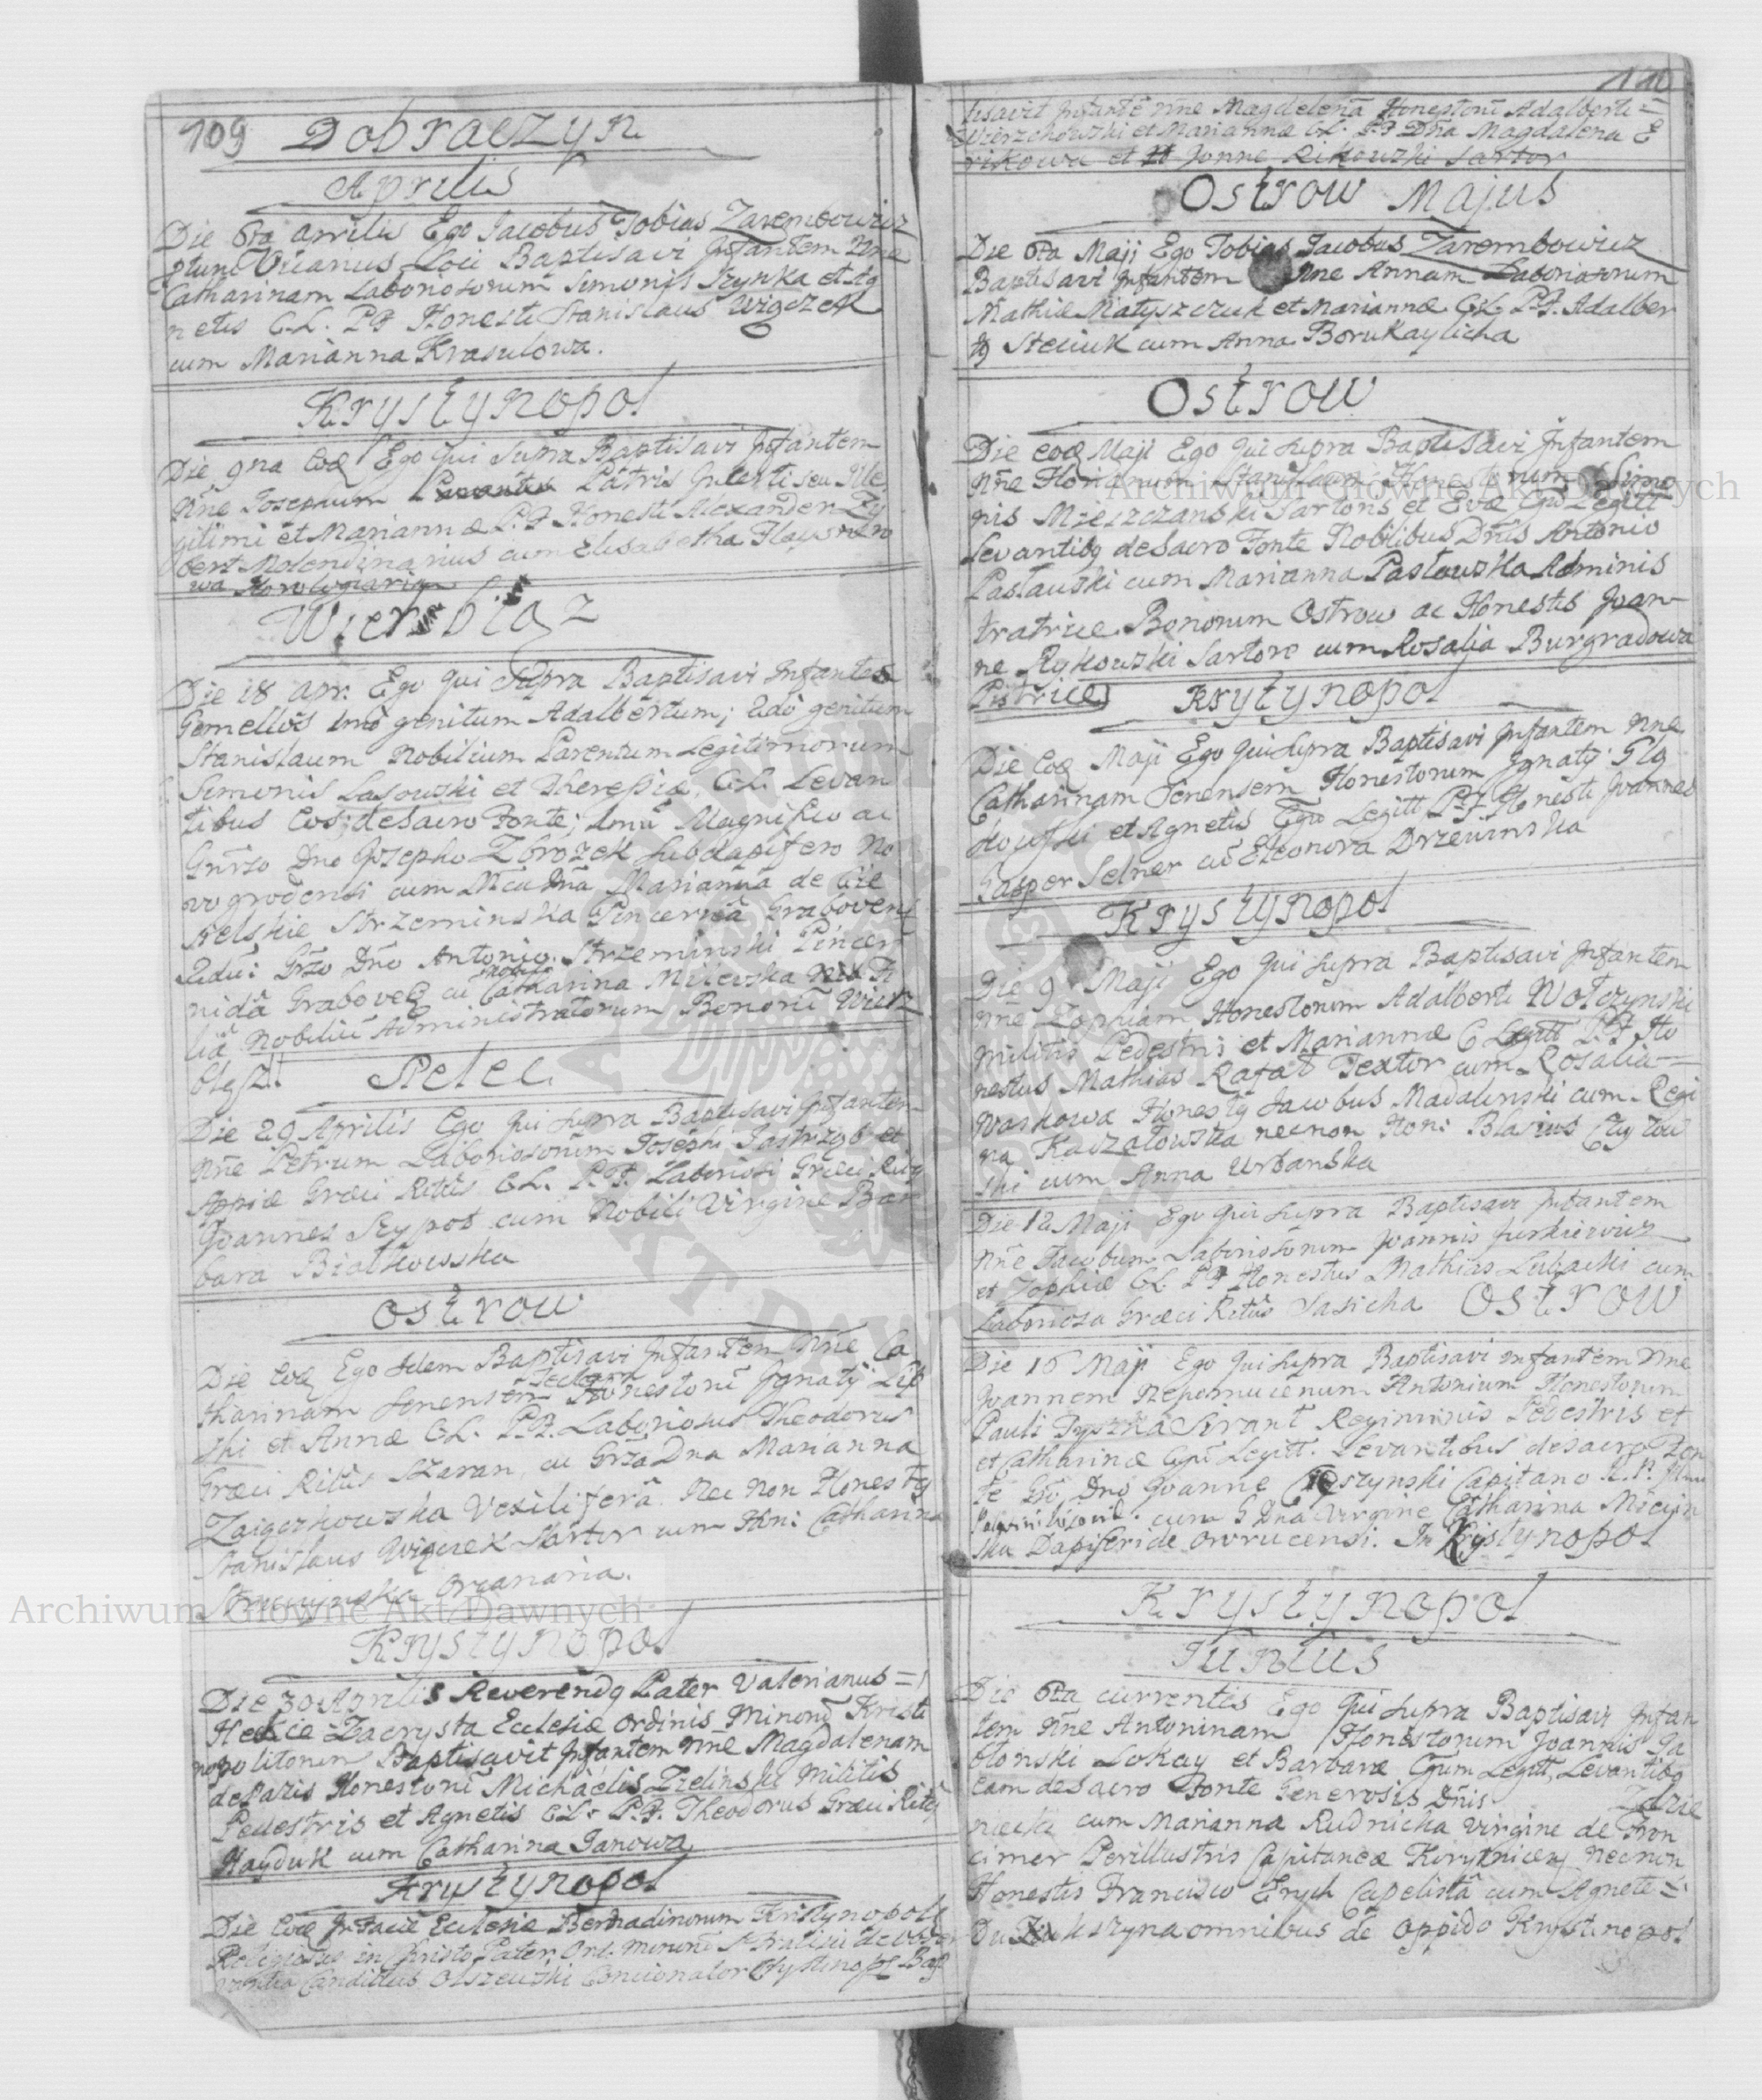 109 Dobraczyn
Aprilis
Die 6ta Aprilis Ego Jacobus Tobias Zarembowicz
ptunc Vicarius Loci Baptisavi Infantem Nne
Catharinam Laboriosorum Simonis Szynka et Ag
netis C.L. PP Honesti Stanislaus Wiączek
cum Marianna Krasulowa.
Krystynopol
Die 9na Eoq Ego Qui Supra Baptisavi Infantem
Nne Josephum Patris Incerti seu Ille
gitimi et Mariannæ P.P Honesti Alexander Zy
bert Molendinarius cum Elisabetha Haysnero
wa Horologiaria
Wiersbiąz
Die 18 Apr: Ego Qui Supra Baptisavi Infantes
Gemellos 1mo genitum Adalbertum; 2do genitum
Stanislaum Nobilium Parentum Legitimorum
Simonis Lasowzki et Theresiæ, C.L. Levan
tibus Eos de Sacro Fonte; 1mu Magnifico ac
Gnrso Dno Josepho Zbrozek Subdapifero No
vogrodensi cum Mca Dna Marianna de Cie
Strzeminska Pincernâ Grabovens
2du: Grso Dno Antonio Strzeminski Pincer
nidâ Graboveq cu Catharina Milewska Fi
liâ Nobiliu Administratorum Bonoru Wierz
Pielec
Die 29 Aprilis Ego Qui Supra Baptisavi Infantem
Nne Petrum Laboriosorum Josephi Jastrząb et
Græci Ritûs C.L. P.P. Laboriosi Græci Ritq
Joannes Szypot cum Nobili Virgine Bar
bara Białkowska
Ostrow
Die Eoq Ego Idem Baptisavi Infantem Nne Ca
tharinam Senensem Honestoru Ignatij Lip
ski et Annæ C.L. P.P. Laboriosus Theodorus
Græci Ritûs Szaran, cu Grsa Dna Marianna
Zaigczkowska Vexiliferâ. Nec Non Honestq
Stanislaus Wiączek Sartor cum Hon: Catharina
Organaria.
Krystynopol
Die 30 Aprilis Reverendq Pater Valerianus =
Zacrysta Eclesiæ Ordinis Minoru Kristi
nopolitorum Baptisavit Infantem Nne Magdalenam
de Pazis Honestoru Michaelis Zielinski Militis
Pedestris et Agnetis C.L. P.P. Theodorus Græci Ritq
Hayduk cum Catharina Janowa
Krystynopol
Die Eoq In Facie Eclesiæ Bernadinorum Kristynopoli
Religiosus in Christo Pater Ord. Minoru
Candidus Olszewzki Concionator Bap
110
tisavit Infante Nne Magdelena Honestoru Adalberti =
Wierzchowzki et Mariannæ C.L. P.P Dna Magdalena E
rikowa et Jonne Rikowzki Sartor
Ostrow Majus
Die 6ta Maji Ego Tobias Jacobus Zarembowicz
Baptisavi Infantem Nne Annam Laboriosorum
Mathiæ Matyszczuk et Mariannæ C.L. P.P. Adalber
tq Steciuk cum Anna Borukaylicha
Ostrow
Die Eoq Maji Ego Qui Supra Baptisavi Infantem
Nne Florianum Stanislaum Honestorum Simo
nis Mieszczanski Sartoris et Evæ Cgu Legitt
Levantibq de Sacro Fonte Nobilibus Dnis Antonio
Pastawski cum Marianna Pastawska Adminis
tratrice Bonorum Ostrow ac Honestis Joan
ne Rykowzki Sartore cum Rosalia Burgradowa
Pistrice Krystynopol
Die Eoq Maji Ego Qui Supra Baptisavi Infantem Nne
Catharinam Senensem Honestorum Ignatij Glq
et Agnetis Cgu Legitt P.P Honesti Joannes
Gasper Selner cu Eleonora Drzewinska
Krystynopol
Die 9 Maji Ego Qui Supra Baptisavi Infantem
Nne Zophiam Honestorum Adalberti Wolczynski
Militis Pedestris et Mariannæ C Legitt P.P Ho
nestus Mathias Rafał Textor cum Rosalia =
Waskowa Honestq Jacobus Madalenski cum Regi
na Kaczałowska necnon Hon: Blasius Czyżow
ski cum Anna Urbanska
Die 12 Maji Ego Qui Supra Baptisavi Infantem
Nne Jacobum Laboriosorum Joannis Jurkiewicz
et Zophiæ C.L. P.P Honestus Mathias Lubacki cum
Laboriosa Græci Ritûs Sasicha Ostrow
Die 16 Maji Ego Qui Supra Baptisavi Infantem Nne
Joannem Nepomucenum Antonium Honestorum
Pauli Regiminis Pedestris et
et Catharinæ Cgu Legitt. Levantibus de Sacro Fon
te Gso Dno Joanne Cieszynski Capitano
cum G Dna Virgine Catharina
ska Dapiferide Owrucensi. In Kristynopol
Krystynopol
Junius
Die 6ta currentis Ego Qui Supra Baptisavi Infan
tem Nne Antoninam Honestorum Joannis Ja
błonski Lokay et Barbaræ Cgum Legitt, Levantibq
Eam de Sacro Fonte Generosis Dnis Zdzie
cum Marianna Rudnicka Virgine de Fron
cimer Perillustris Capitaneæ Korytnicen necnon
Honestis Francisco Erych Capelistâ cum Agnete =
omnibus de Oppido Krystinopol
Archiwum Główne Akt Dawnych
Archiwum Główne Akt Dawnych